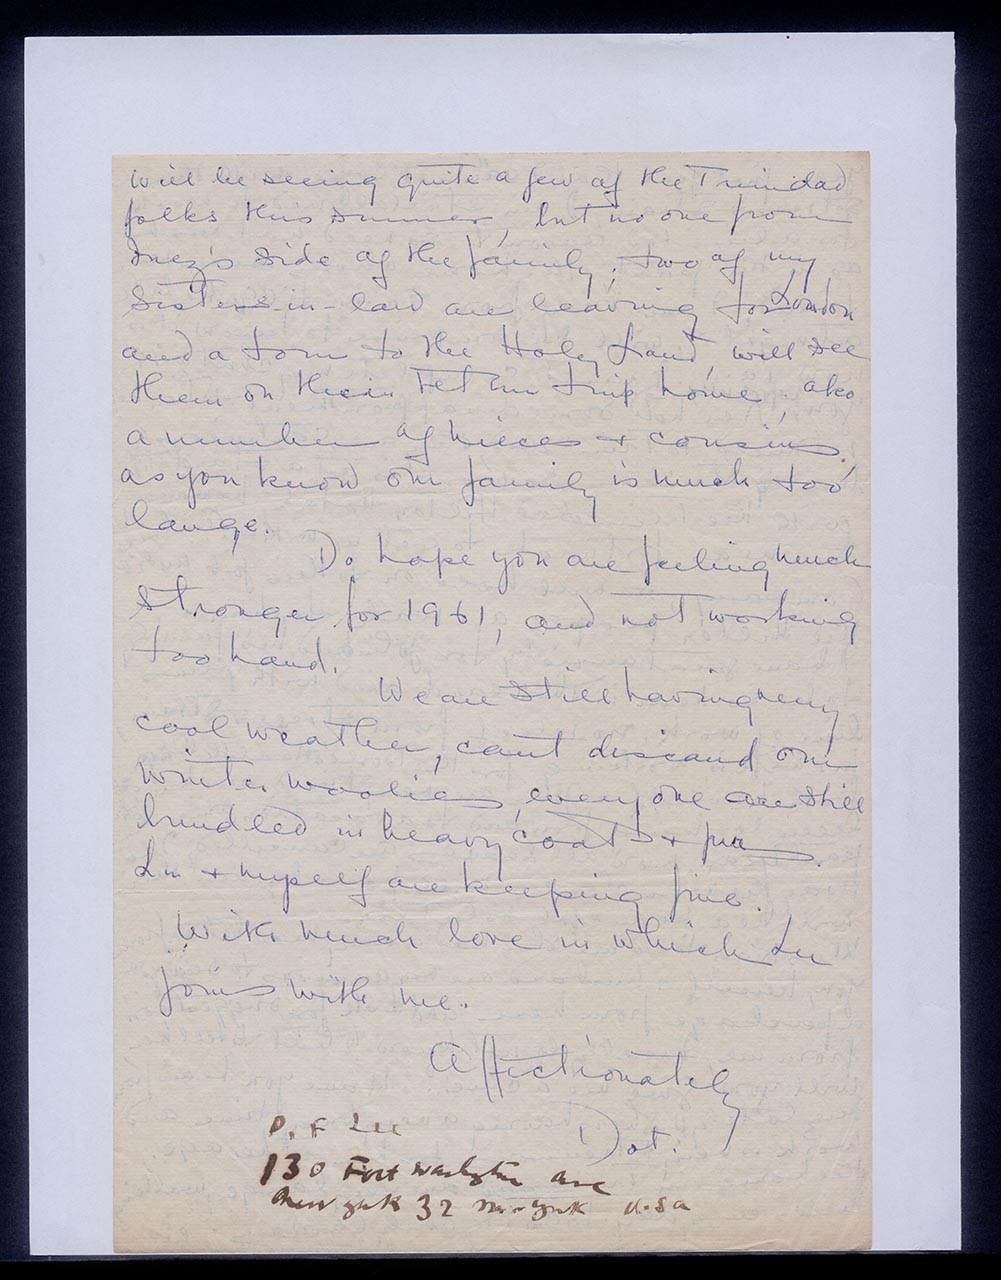 Will be seeing quite a few of the Trinidad
folks this summer, but no one from
Inez's side of the family, two of my
sisters-in-law are leaving for London
and a tour to the Holy Land, will see
them on their return trip home, also
a number of nieces + cousins.
as you know our family is much too
large.
Do hope you are feeling much
stronger for 1961, and not working
too hard.
We are still having very
cool weather, can't discard our
winter woolies, everyone are still
bundled in heavy coats + furs.
Lu + myself are keeping fine.
With much love in which Lu
joins with me.
Affectionately
Dot.
D. F Lee
130 Fort Washington Ave
New York 32 New York U.S.A